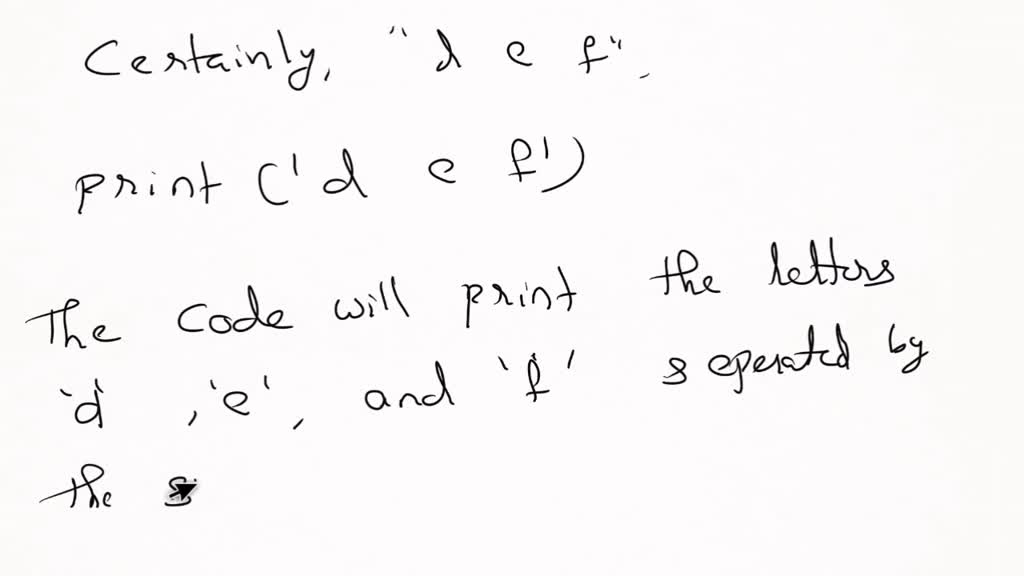 Certainly, "d e f".
print ('d e f')
The code will print the letters
'd', 'e', and 'f' seperated by
the s